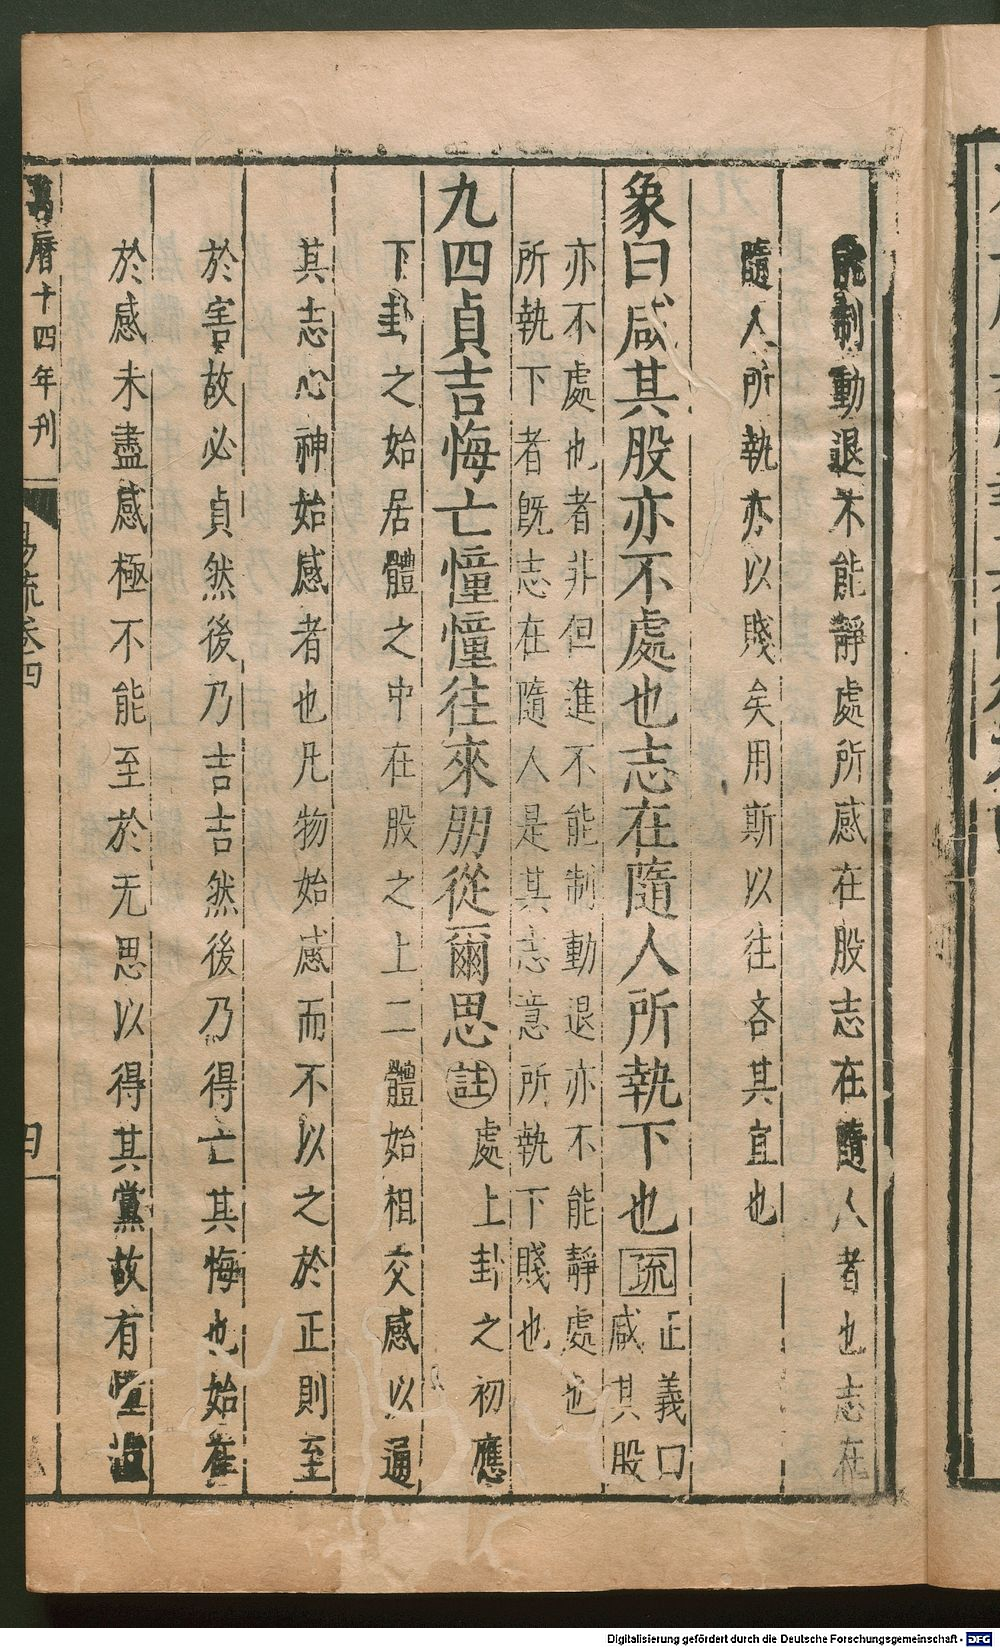 能制動退不能靜處所感在股志在隨人者也志在
隨人所執亦以賤矣用斯以往吝其宜也
象曰咸其股亦不處也志在隨人所執下也疏正義曰
咸其股
亦不處也者非但進不能制動退亦不能靜處也
所執下者旣志在隨人是其志意所執下賤也
九四貞吉悔亡憧憧往來朋從爾思註處上卦之初應
下卦之始居體之中在股之上二體始相交感以通
其志心神始感者也凡物始感而不以之於正則至
於害故必貞然後乃吉吉然後乃得亡其悔也始在
於感未盡感極不能至於无思以得其黨故有憧憧
萬曆十四年刊
易疏卷四
Digitalisierung gefördert durch die Deutsche Forschungsgemeinschaft - DFG